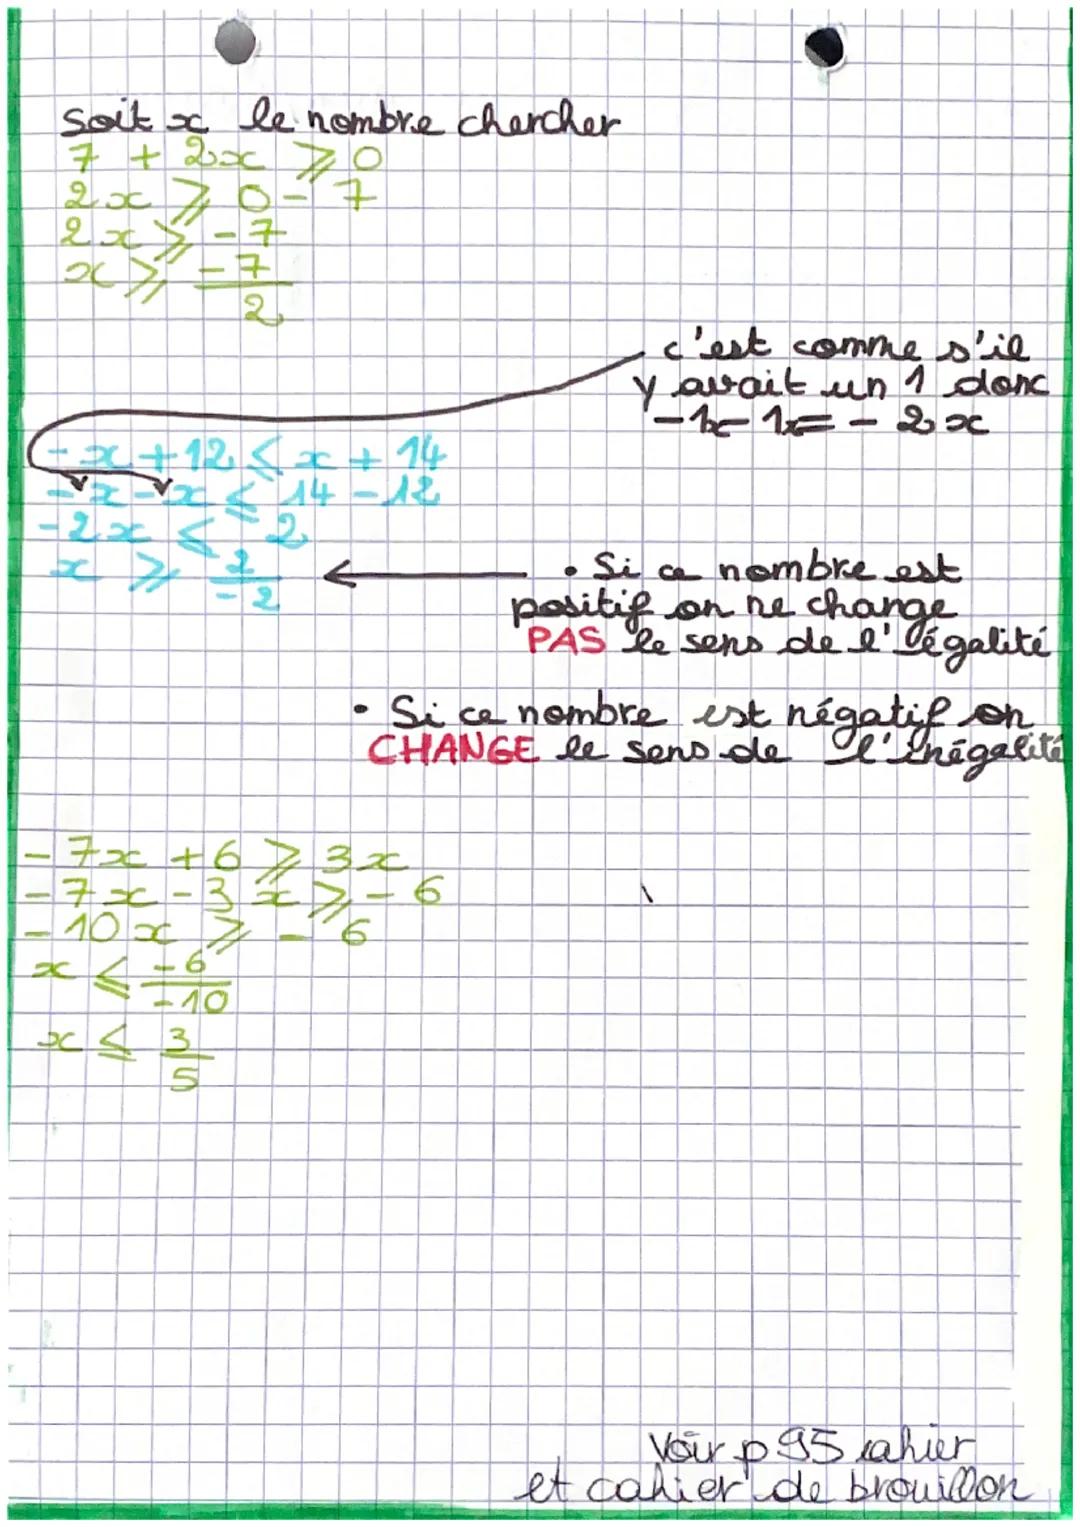 soit x le nombre chercher
7 + 2x ⩾ 0
2x ⩾ 0 - 7
2x ⩾ -7
x ⩾ -7/2
c'est comme s'il
y avait un 1 donc
-1x-1x= - 2x
-x+12 ⩽ x + 14
-x-x ⩽ 14 -12
-2x ⩽ 2
x ⩾ 2/-2
• Si ce nombre est
positif on ne change
PAS le sens de l'égalité
• Si ce nombre est négatif on
CHANGE le sens de l'inégalité
-7x +6 ⩾ 3x
-7x -3x ⩾ -6
-10x ⩾ -6
x ⩽ -6/-10
x ⩽ 3/5
Voir p 95 cahier
et cahier de brouillon